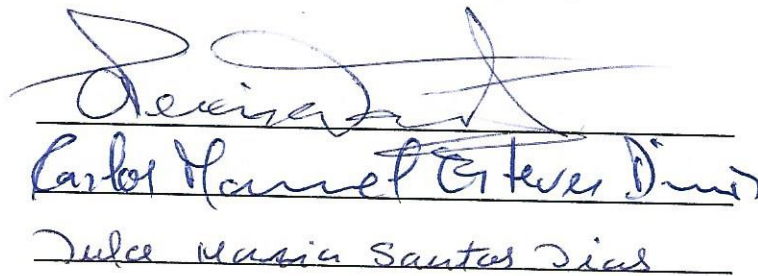 Carlos Manuel Esteves Dinis
Dulce Maria Santos Dias